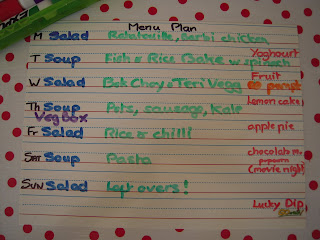 Menu Plan
M Salad Ratatouille, Barbi chicken
T Soup Fish & Rice Bake w spinach Yoghourt
W Salad Bok Choy & Teri Vegg Fruit
Th Soup Pots, sausage, Kale Lemon cake
Veg Box
Fr Salad Rice & chilli apple pie
Sat Soup Pasta chocolate popcorn
(movie night)
Sun Salad Left overs!
Lucky Dip